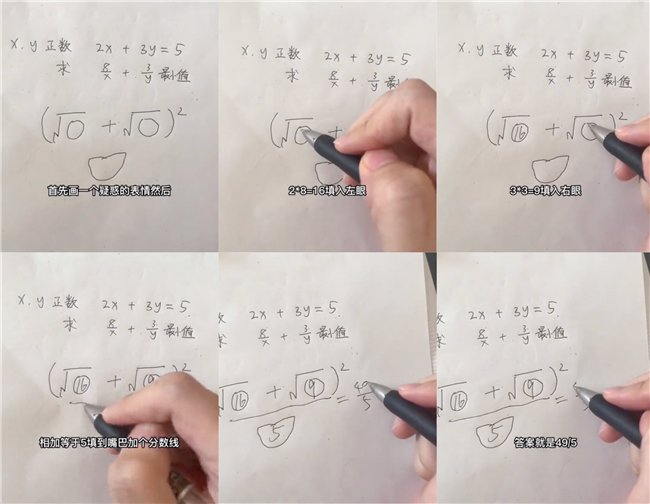 x, y 正数 2x + 3y = 5
求 8/x + 3/y 最小值
(√○ + √○)²
首先画一个疑惑的表情然后
x, y 正数 2x + 3y = 5
求 8/x + 3/y 最小值
(√ +
2*8=16填入左眼
x, y 正数 2x + 3y = 5
求 8/x + 3/y 最小值
(√16 + √ )²
3*3=9填入右眼
x, y 正数 2x + 3y = 5
求 8/x + 3/y 最小值
(√16 + √9)²
相加等于5填到嘴巴加个分数线
数 2x + 3y = 5
求 8/x + 3/y 最小值
√16 + √9)² = 49/5
5
数 2x + 3y = 5
求 8/x + 3/y 最小值
√16 + √9)² =
5
答案就是49/5